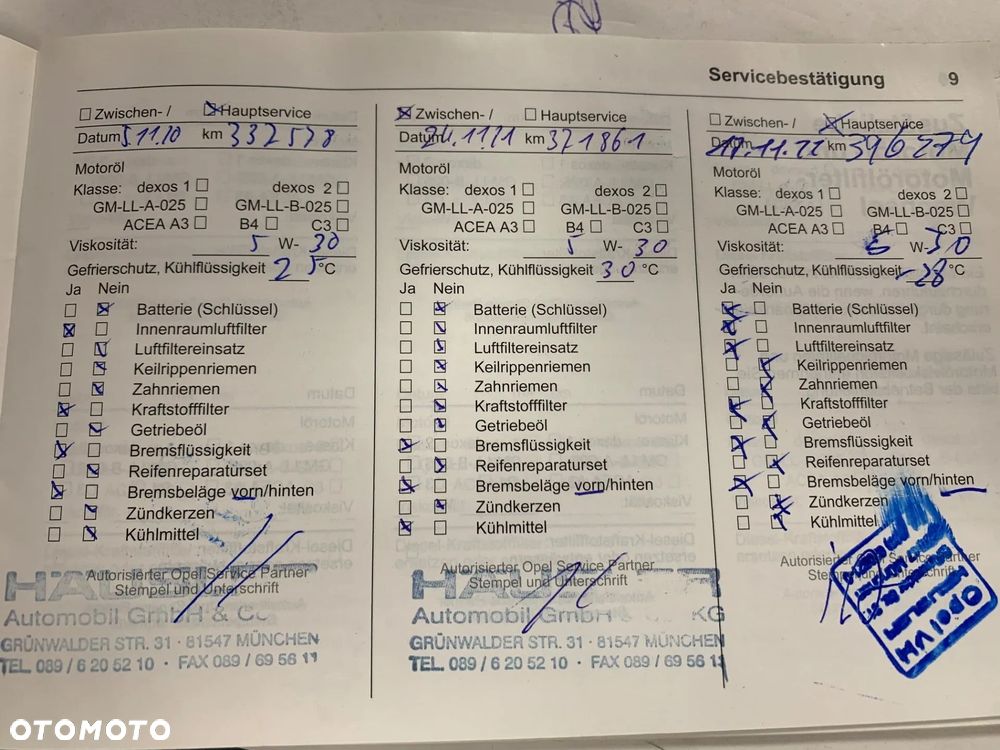 Servicebestätigung 9
Zwischen- / Hauptservice
Datum 5.11.10 km 332578
Motoröl
Klasse: dexos 1 dexos 2
GM-LL-A-025 GM-LL-B-025
ACEA A3 B4 C3
Viskosität: 5 W- 30
Gefrierschutz, Kühlflüssigkeit 25 °C
Ja Nein
Batterie (Schlüssel)
Innenraumluftfilter
Luftfiltereinsatz
Keilrippenriemen
Zahnriemen
Kraftstofffilter
Getriebeöl
Bremsflüssigkeit
Reifenreparaturset
Bremsbeläge vorn/hinten
Zündkerzen
Kühlmittel
Autorisierter Opel Service Partner
Stempel und Unterschrift
Automobil GmbH & Co
GRÜNWALDER STR. 31 · 81547 MÜNCHEN
TEL. 089 / 6 20 52 10 · FAX 089 / 69 56 11
Zwischen- / Hauptservice
Datum .11.11 km 371861
Motoröl
Klasse: dexos 1 dexos 2
GM-LL-A-025 GM-LL-B-025
ACEA A3 B4 C3
Viskosität: 5 W- 30
Gefrierschutz, Kühlflüssigkeit 30 °C
Ja Nein
Batterie (Schlüssel)
Innenraumluftfilter
Luftfiltereinsatz
Keilrippenriemen
Zahnriemen
Kraftstofffilter
Getriebeöl
Bremsflüssigkeit
Reifenreparaturset
Bremsbeläge vorn/hinten
Zündkerzen
Kühlmittel
Autorisierter Opel Service Partner
Stempel und Unterschrift
Automobil GmbH KG
GRÜNWALDER STR. 31 · 81547 MÜNCHEN
TEL. 089 / 6 20 52 10 · FAX 089 / 69 56 1
Zwischen- / Hauptservice
Datum .11.22 km 396274
Motoröl
Klasse: dexos 1 dexos 2
GM-LL-A-025 GM-LL-B-025
ACEA A3 B4 C3
Viskosität: W- 30
Gefrierschutz, Kühlflüssigkeit -28 °C
Ja Nein
Batterie (Schlüssel)
Innenraumluftfilter
Luftfiltereinsatz
Keilrippenriemen
Zahnriemen
Kraftstofffilter
Getriebeöl
Bremsflüssigkeit
Reifenreparaturset
Bremsbeläge vorn/hinten
Zündkerzen
Kühlmittel
Autorisierter Opel Service Partner
Stempel und Unterschrift
OTOMOTO